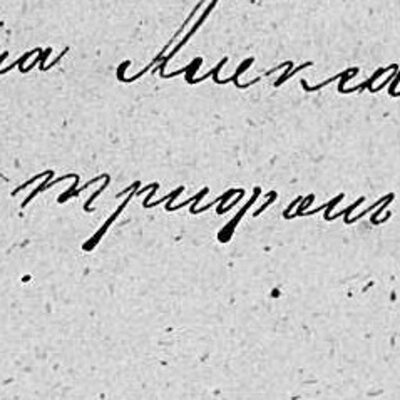 на Алекса
трифонъ